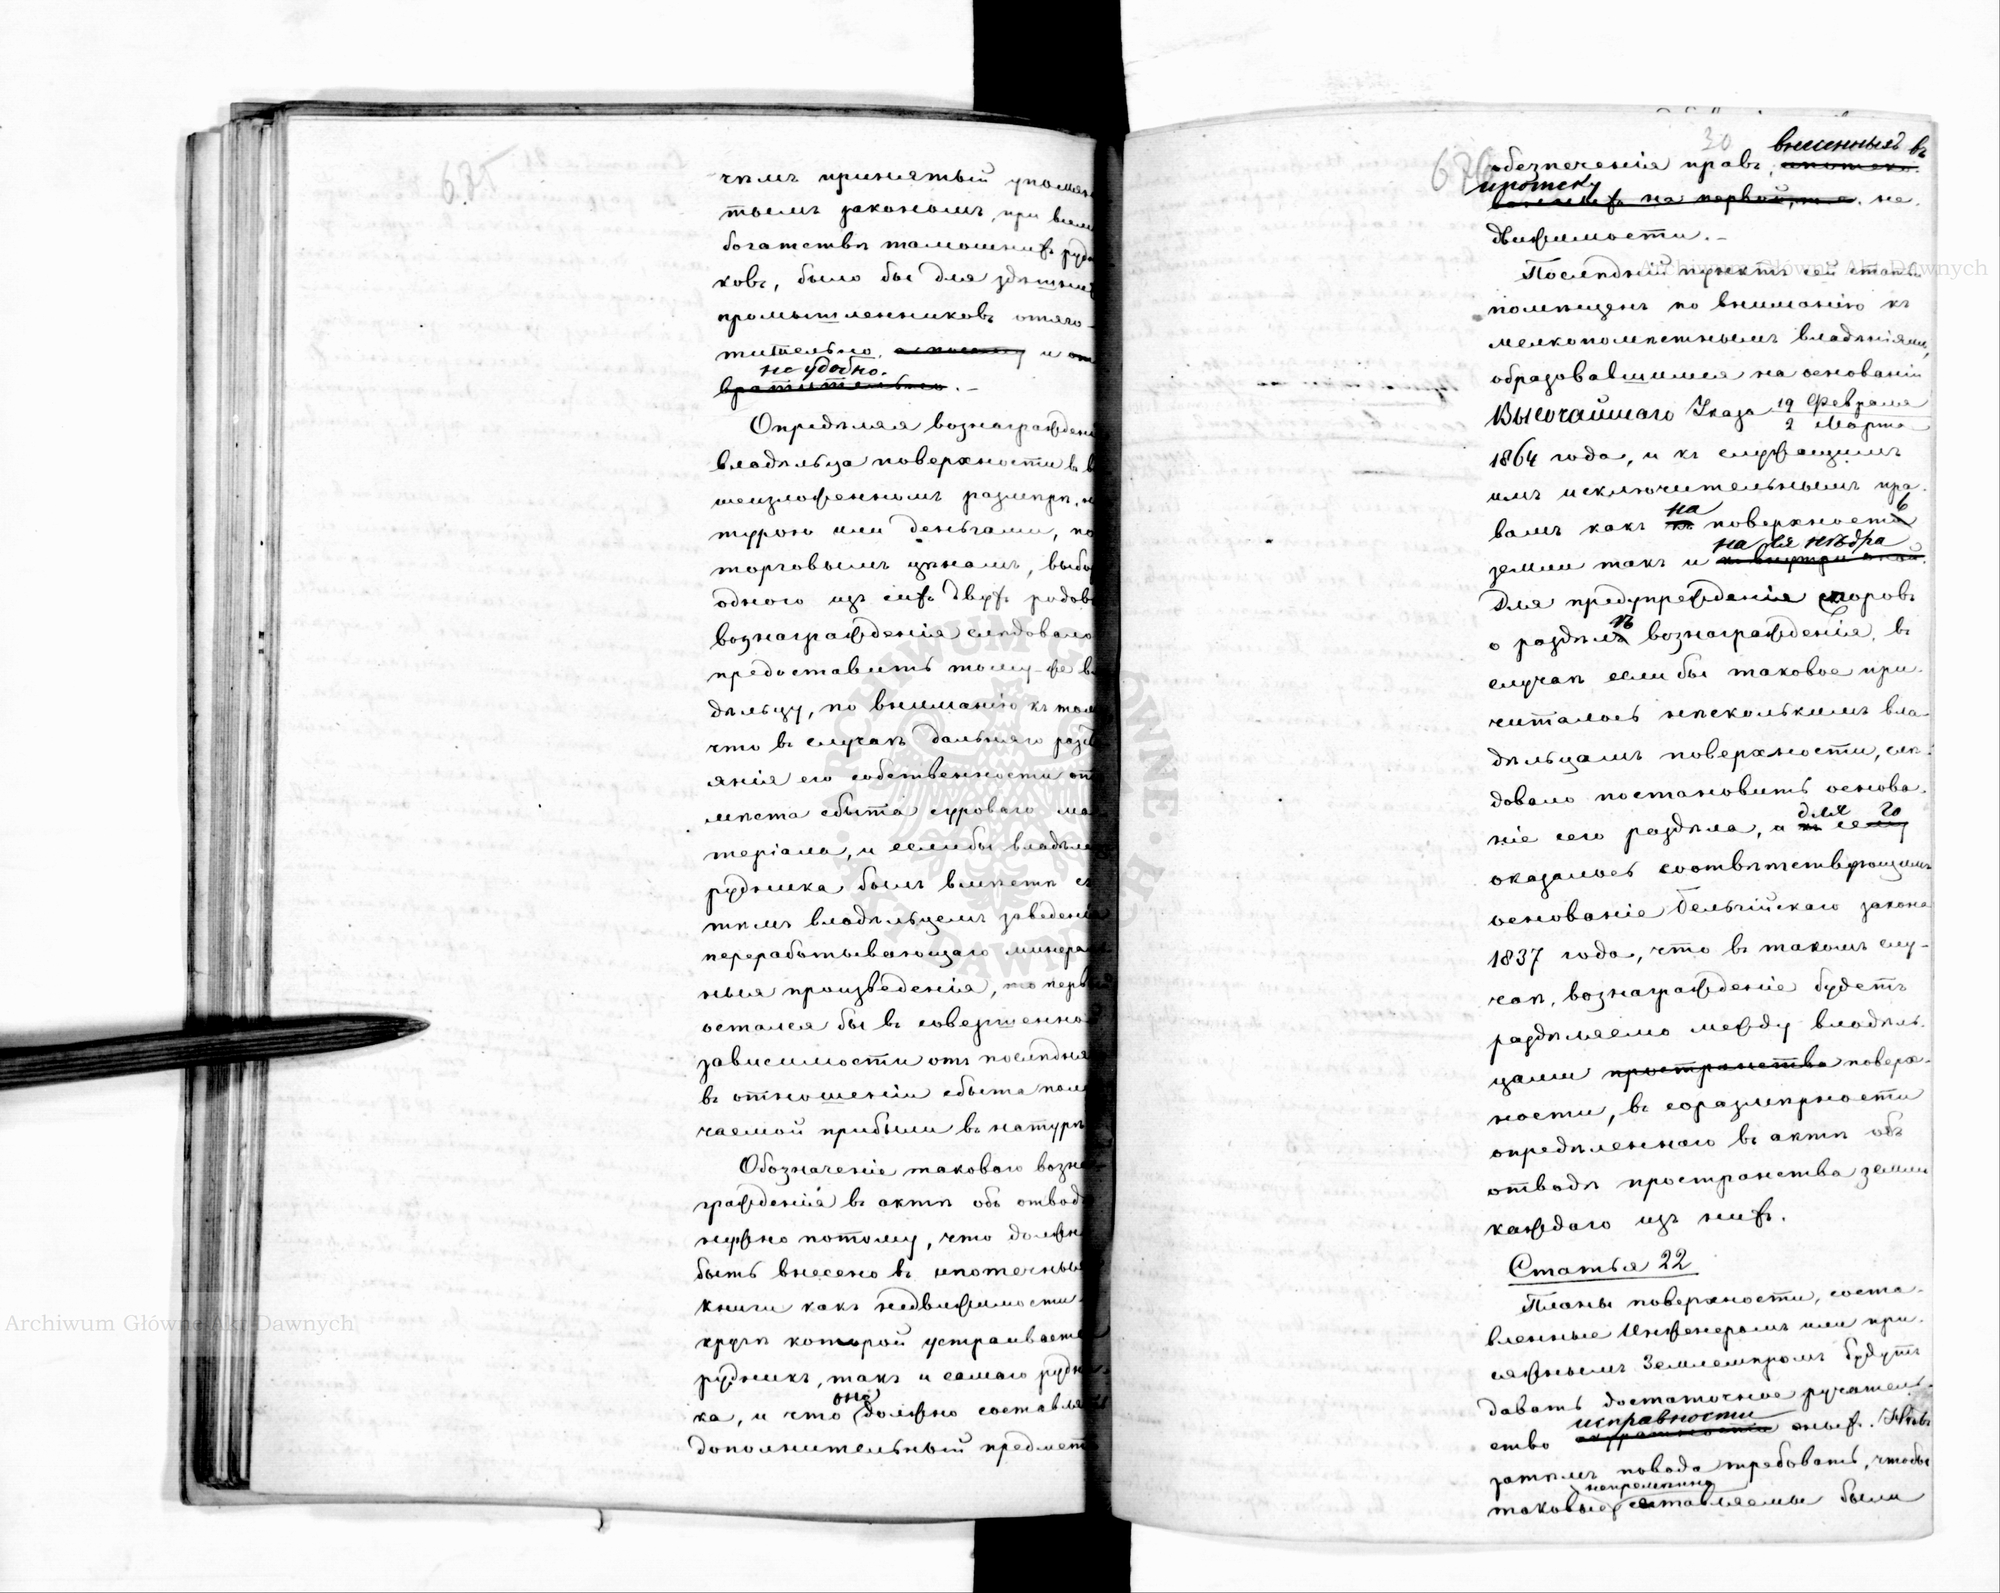 685
чѣмъ принятый упомян
тымъ закономъ, при вели
богатствѣ тамошнихъ рудн
ковъ, было бы для здѣшних
промышленниковъ отяго-
тительно, и
неудобно.
вратительно. –
Опредѣляя вознагражденi
владѣльца поверхности въ в
шеизложенномъ размѣрѣ, н
турою или деньгами, по
торговымъ цѣнамъ, выбор
одного изъ сихъ двухъ родовъ
вознагражденія слѣдовало
предоставить тому-же вл
дѣльцу, по вниманію къ тому
что въ случаѣ дальняго разст
янія его собственности отъ
мѣста сбыта суроваго ма
теріала, и еслибы владѣлец
рудника былъ вмѣстѣ съ
тѣмъ владѣльцемъ заведенія
переработывающаго минерал
ныя произведенія, то первый
остался бы въ совершенной
зависимости отъ послѣдня
въ отношеніи сбыта полу
чаемой прибыли въ натурѣ
Обозначеніе таковаго возна
гражденія въ актѣ объ отводѣ
нужно потому, что должн
быть внесено въ ипотечныя
книги какъ недвижимости
кругъ которой устраивается
рудникъ, такъ и самаго рудн
оно
ка, и что должно составлять
дополнительный предметъ
30
686
внесенныхъ въ
обезпеченія правъ,
ипотеку
на первой не-
движимости. –
Послѣдній пунктъ сей статьи
помѣщенъ по вниманію къ
мелкопомѣстнымъ владѣніямъ,
образовавшимся на основаніи
Высочайшаго Указа 19 Февраля
2 Марта
1864 года, и къ служащимъ
имъ исключительнымъ пра-
на
вамъ какъ поверхность
на ея нѣдра
земли такъ и къ внутри оной.
Для предупрежденія споровъ
о раздѣлѣ вознагражденія, въ
случаѣ еслибы таковое при-
читалось нѣсколькимъ вла-
дѣльцамъ поверхности, слѣ-
довало постановить основа-
для го
ніе сего раздѣла, а къ сему
оказалось соотвѣтствующимъ
основаніе Бельгійскаго закона
1837 года, что въ такомъ слу-
чаѣ, вознагражденіе будетъ
раздѣляемо между владѣль-
цами пространства поверх-
ности, въ соразмѣрности
опредѣленнаго въ актѣ объ
отводѣ пространства земли
каждаго изъ нихъ.
Статья 22
Планы поверхности, соста-
вленные Инженеромъ или при-
сяжнымъ Землемѣромъ будутъ
давать достаточное ручатель-
исправности
ство аккуратности оныхъ. Нѣтъ
затѣмъ повода требовать, чтобы
непремѣнно
таковые составляемы были
Archiwum Główne Akt Dawnych
Archiwum Główne Akt Dawnych
ARCHIWUM GŁÓWNE AKT DAWNYCH